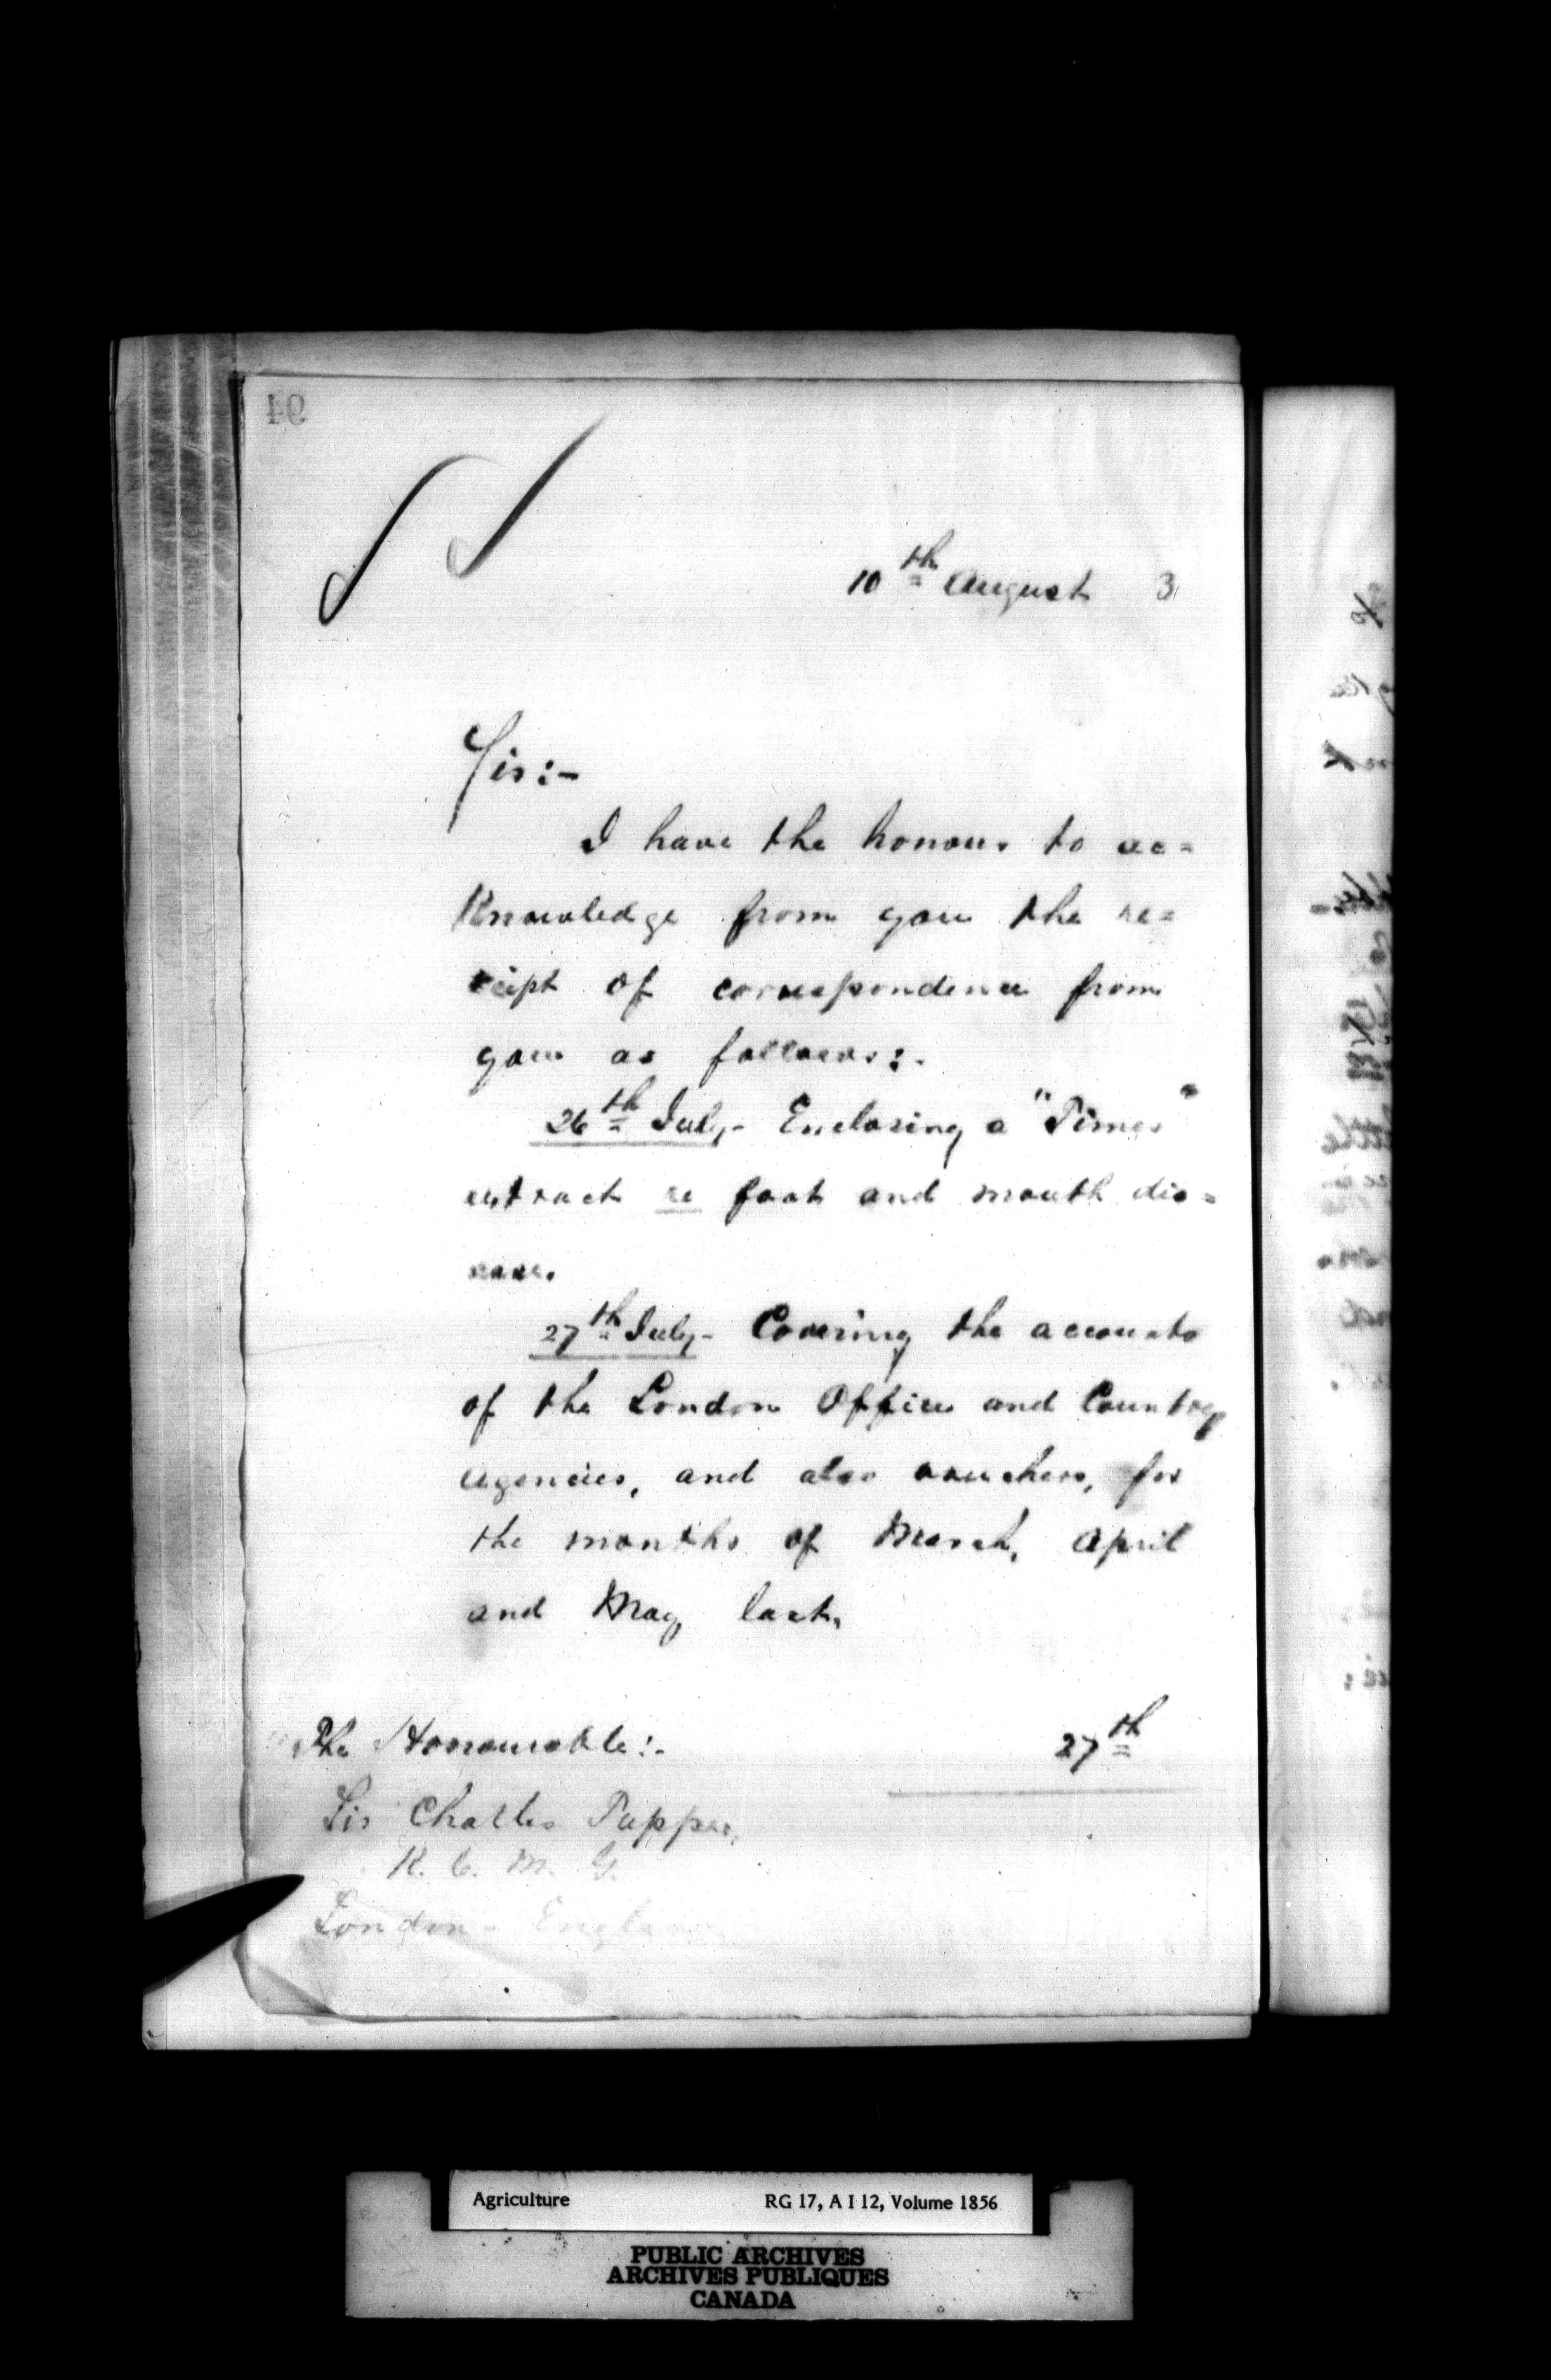 94
10th August 3
Sir:-
I have the honour to ac=
knowledge from you the re=
ceipt of correspondence from
you as follows:-
26th July- Enclosing a "Times"
extract re foot and mouth dis=
ease.
27th July- Covering the accounts
of the London Office and Country
Agencies, and also vouchers, for
the months of March, April
and May last.
27th
The Honourable:-
Sir Charles Tupper,
K. C. M. G.
London - England
Agriculture RG 17, A I 12, Volume 1856
PUBLIC ARCHIVES
ARCHIVES PUBLIQUES
CANADA